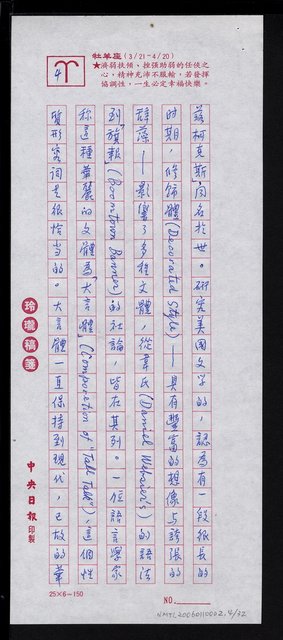 牡羊座(3/21-4/20)
★濟弱扶傾、挫強助弱的任俠之
心,精神充沛不服輸,若發揮
協調性,一生必定幸福快樂。
4
茲柯克斯」聞名於世。研究美國文學的,認為有一段紙長的
時期,修飾體(Decorated Style)——具有豐富的想像与誇張的
辭藻——影響了多種文體,從韋氏(Daniel Webster's)的語法
到「旗報」(Boomtown Banner)的社論,皆在其列。一位語言學家
称這種華麗的文體為「大言體」(Composition of "Tall Talk"),這個性
質形容词是很恰当的。大言體一直保持到現代,已故的華
玲瓏稿箋
中央日報印製
25×6=150
NO.
NMTL20060110002, 4/32